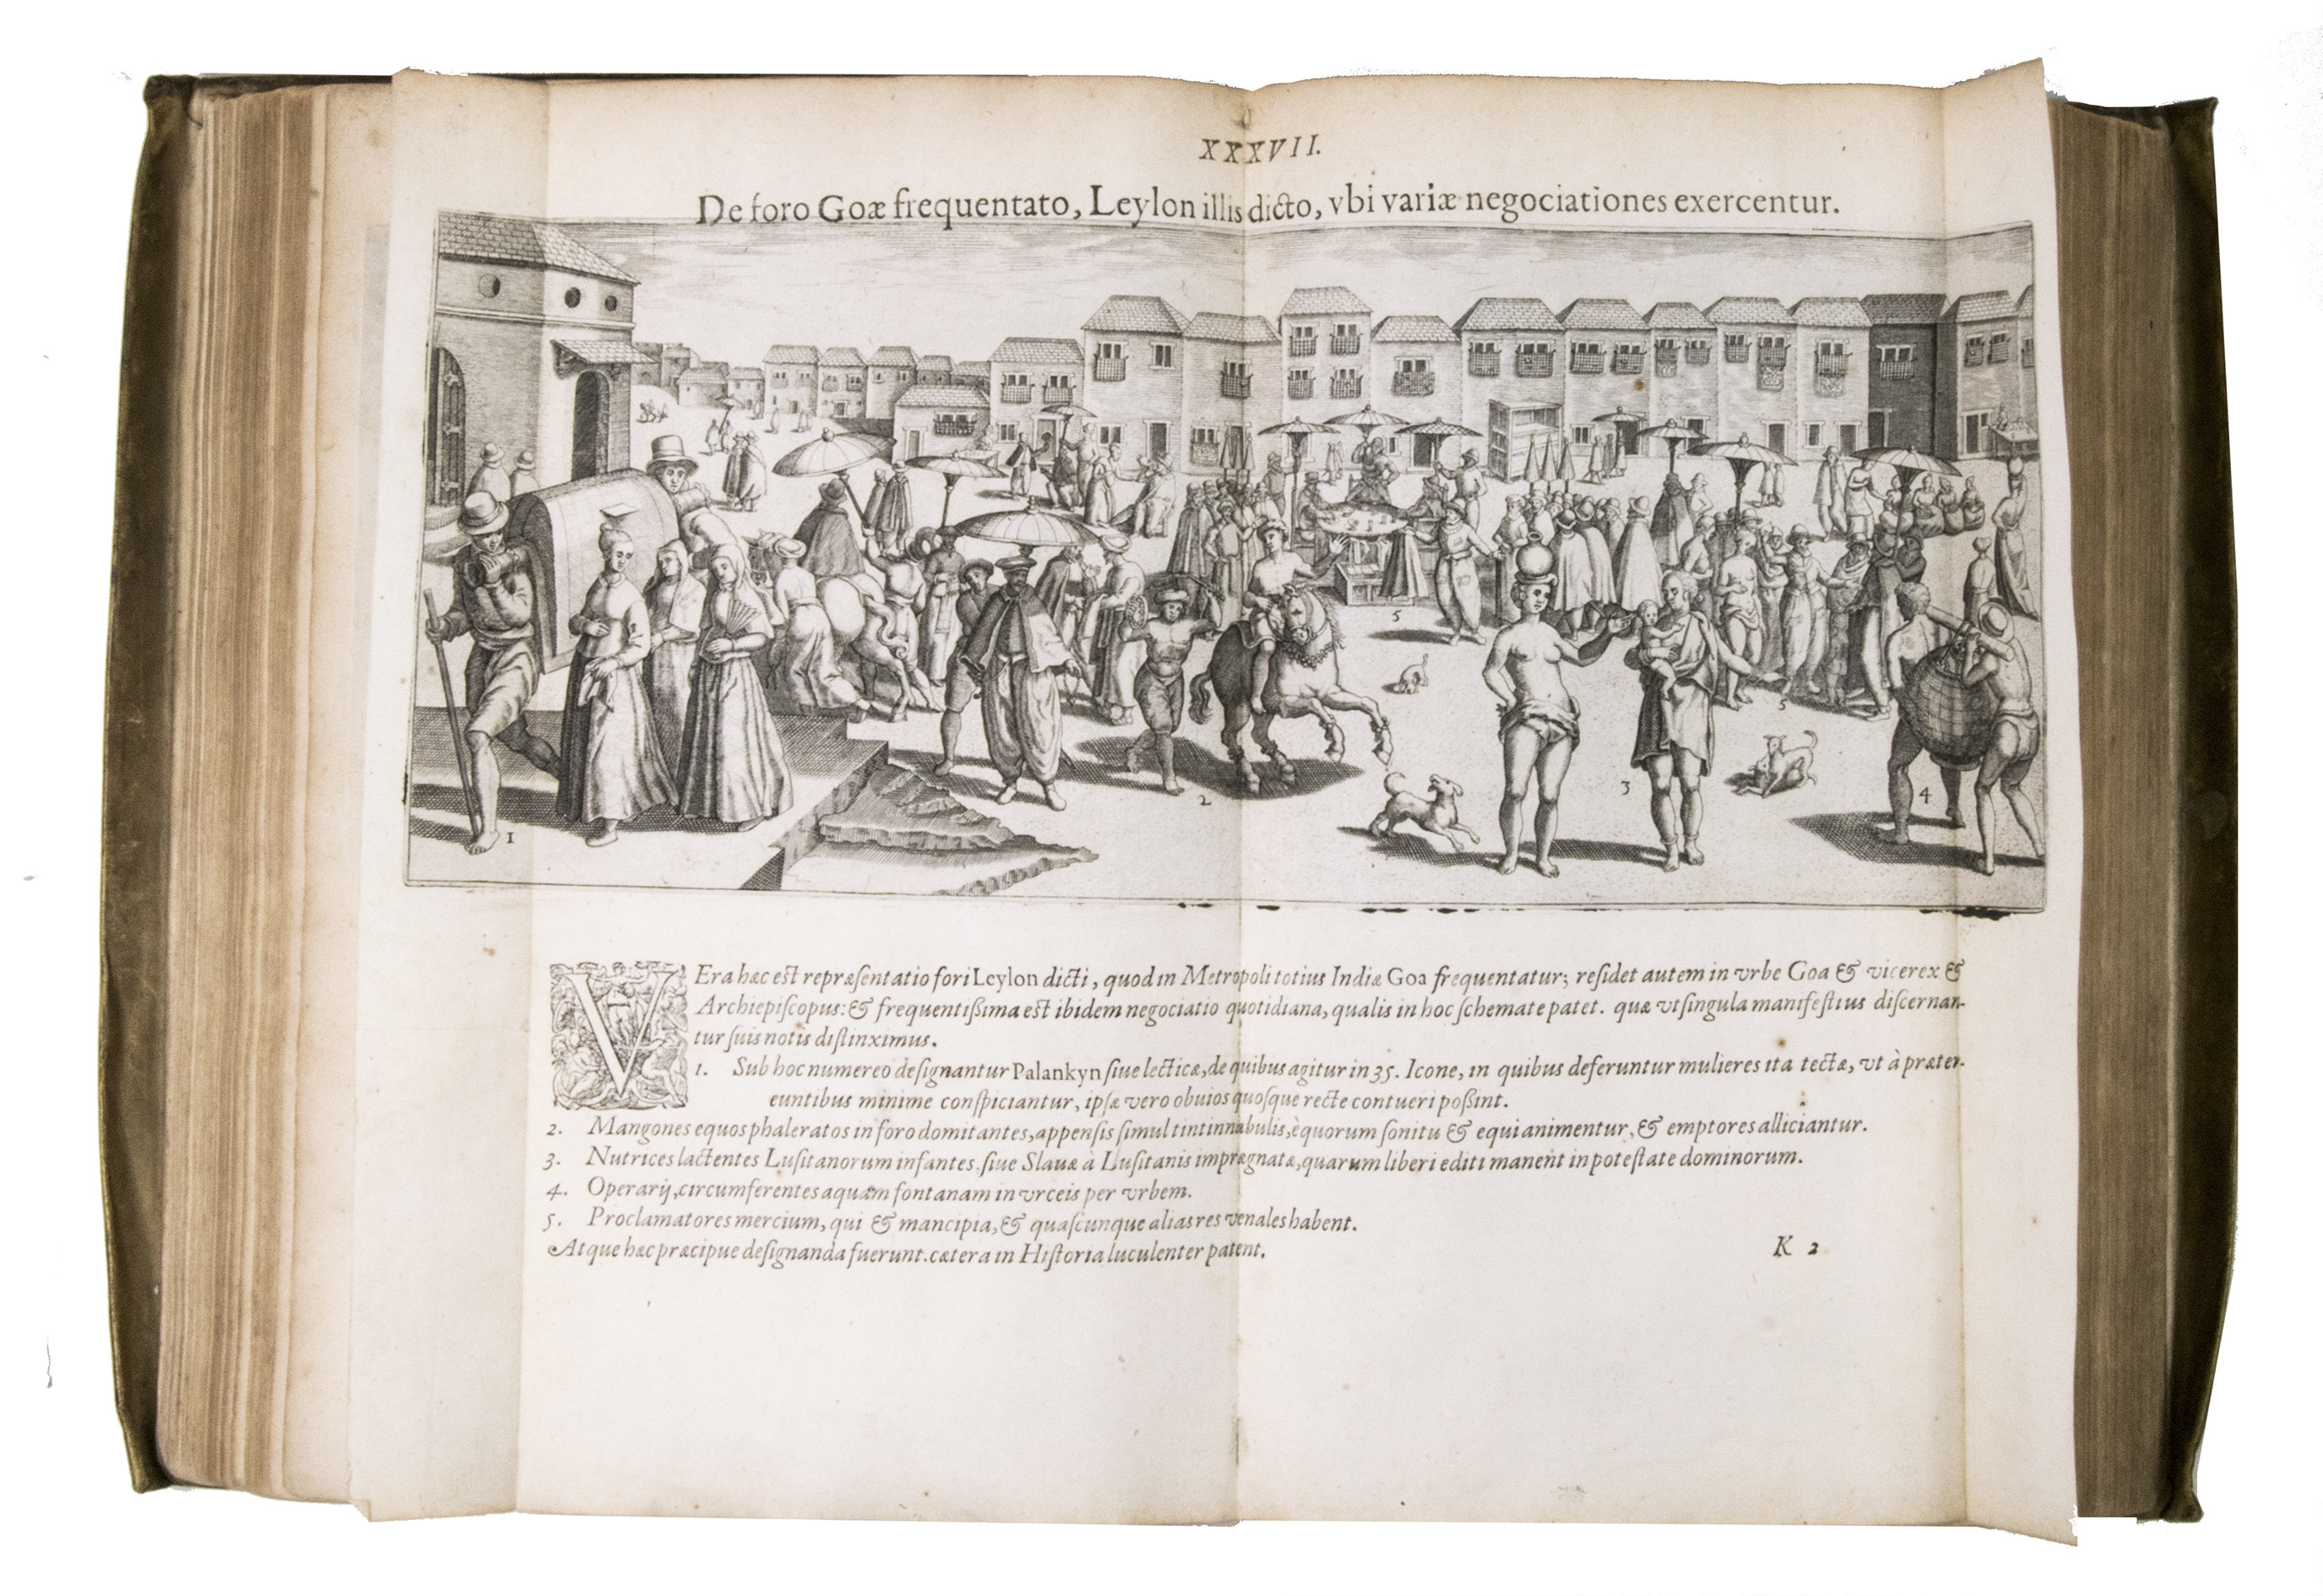 XXXVII.
De foro Goæ frequentato, Leylon illis dicto, vbi variæ negociationes exercentur.
5
5
2
3
4
1
VEra hæc est repræſentatio fori Leylon dicti, quod in Metropoli totius Indiæ Goa frequentatur; reſidet autem in vrbe Goa & vicerex &
Archiepiſcopus: & frequentißima est ibidem negociatio quotidiana, qualis in hoc ſchemate patet. quæ vt ſingula manifeſtius diſcernan-
tur ſuis notis diſtinximus.
1. Sub hoc numereo deſignantur Palankyn ſiue lecticæ, de quibus agitur in 35. Icone, in quibus deferuntur mulieres ita tectæ, vt à præter-
euntibus minime conſpiciantur, ipſæ vero obuios quoſque recte contueri poßint.
2. Mangones equos phaleratos in foro domitantes, appenſis ſimul tintinnabulis, è quorum ſonitu & equi animentur, & emptores alliciantur.
3. Nutrices lactentes Luſitanorum infantes, ſiue Slauæ à Luſitanis imprægnatæ, quarum liberi editi manent in poteſtate dominorum.
4. Operarij, circumferentes aquam fontanam in vrceis per vrbem.
5. Proclamatores mercium, qui & mancipia, & quaſcunque alias res venales habent.
Atque hæc præcipue deſignanda fuerunt. cætera in Hiſtoria luculenter patent.
K 2